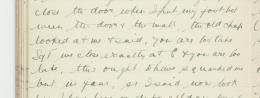 close the door when I put my foot bet
ween the door & the wall the old chap
looked at me & said, you are too late
Sgt we close exactly at 6 & you are too
late, this ought to have squashed me
but no fear, so I said, now look